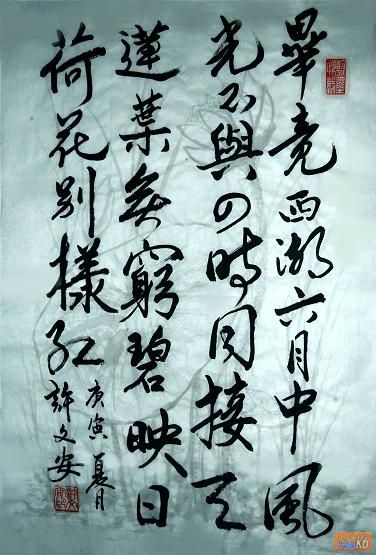 畢竟西湖六月中風
光不與四時同接天
蓮葉無窮碧映日
荷花別樣紅
庚寅夏月
許文安
K6